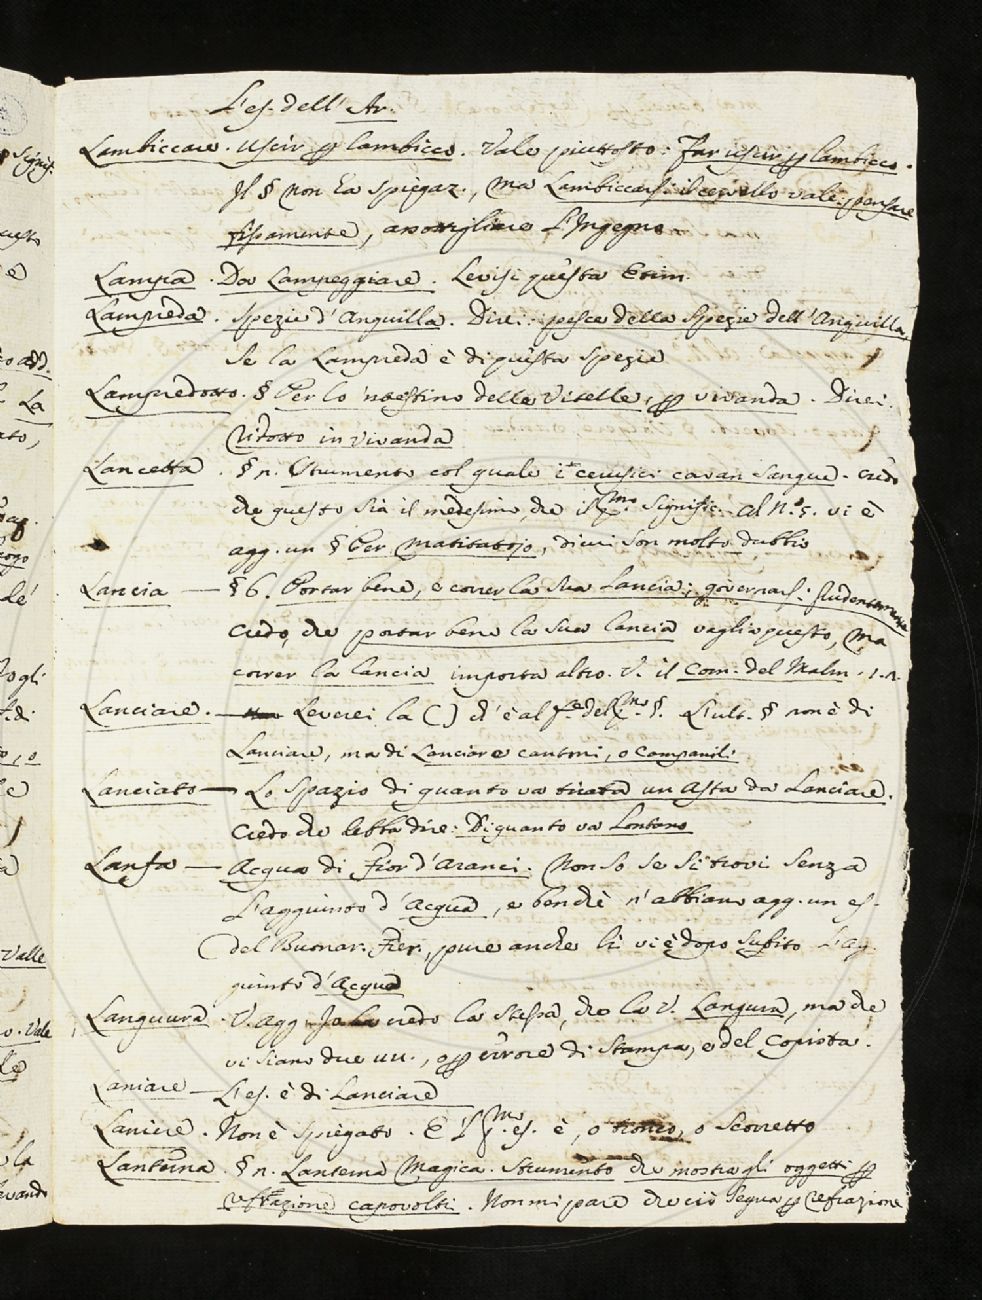 L'es. dell' Ar.
Lambiccare. Uscir p lambicco. Vale piuttosto: Far uscir p lambicco.
Il § non ha spiegaz., ma Lambiccarsi il cervello vale: pensare
fissamente, assottigliare l'Ingegno
Lampia. Da Lampeggiare. Levisi questa Etim.
Lampreda. Spezie d'Anguilla. Direi: pesce della Spezie dell'Anguilla,
se la Lampreda è di questa spezie
Lampredotto. § Per lo 'ntestino delle Vitelle, p vivanda. Direi.
ridotto in vivanda
Lancetta. § n. Strumento col quale i cerusici cavan sangue. Credo
che questo sia il medesimo, che il pmo. Signific. Al N.° 5. vi è
agg. un § Per Matitatojo, di cui son molto dubbio
Lancia — § 6. Portar bene, e correr la sua Lancia; governarsi
Credo, che portar bene la sua lancia vaglia questo, ma
correr la lancia importa altro. V. il Com. del Malm. 1.
Lanciare. — Leverei la () ch'è al f.e del pmo §. L'ult. § non è di
Lanciare, ma di Lanciare cantoni, o Campanili
Lanciato — Lo Spazio di quanto va tirata un Asta da Lanciare.
Credo che debba dire: Di quanto va lontano
Lanfa — Acqua di Fior d'Aranci. Non so se si trovi senza
l'aggiunto d'Acqua, e benchè n'abbiano agg. un es.
del Buonar. Fier., pure anche lì vi è dopo subito l'ag-
giunto d'Acqua
Languura. V. agg. Io la credo la stessa, che la V. Langura, ma che
vi siano due uu., o p errore di Stampa, o del Copista.
Laniare — L'es. è di Lanciare
Laniere. Non è spiegato. E 'l pmo. es. è, o tronco, o scorretto
Lanterna. § n. Lanterna Magica. Strumento che mostra gli oggetti p
refrazione capovolti. Non mi pare che ciò segua p refrazione